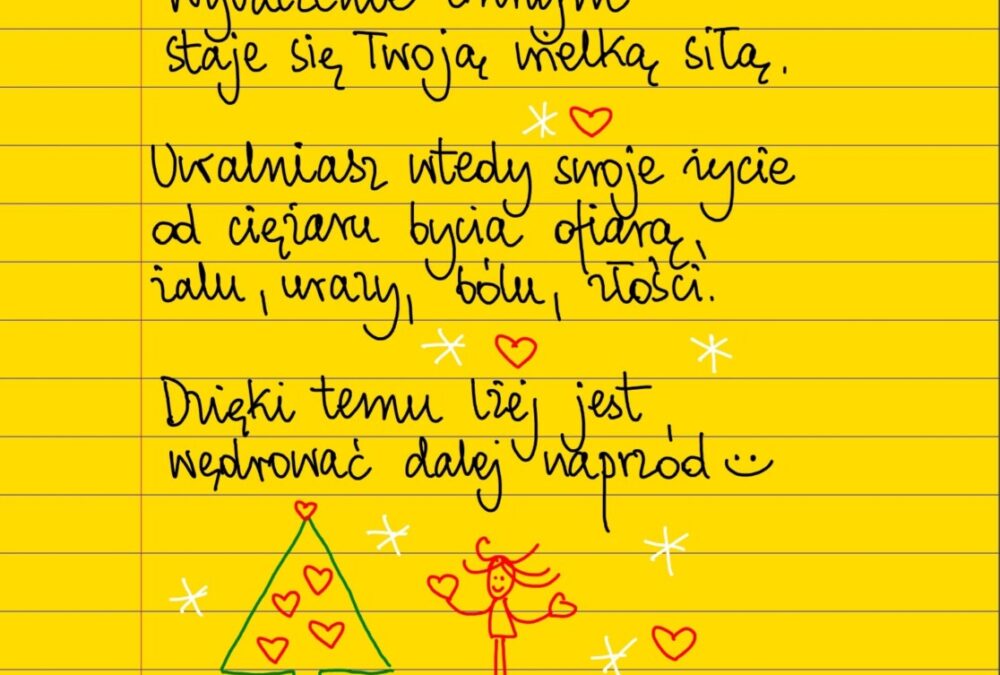 staje się Twoją wielką siłą.
Uwalniasz wtedy swoje życie
od ciężaru bycia ofiarą,
żalu, urazy, bólu, złości.
Dzięki temu lżej jest
wędrować dalej naprzód